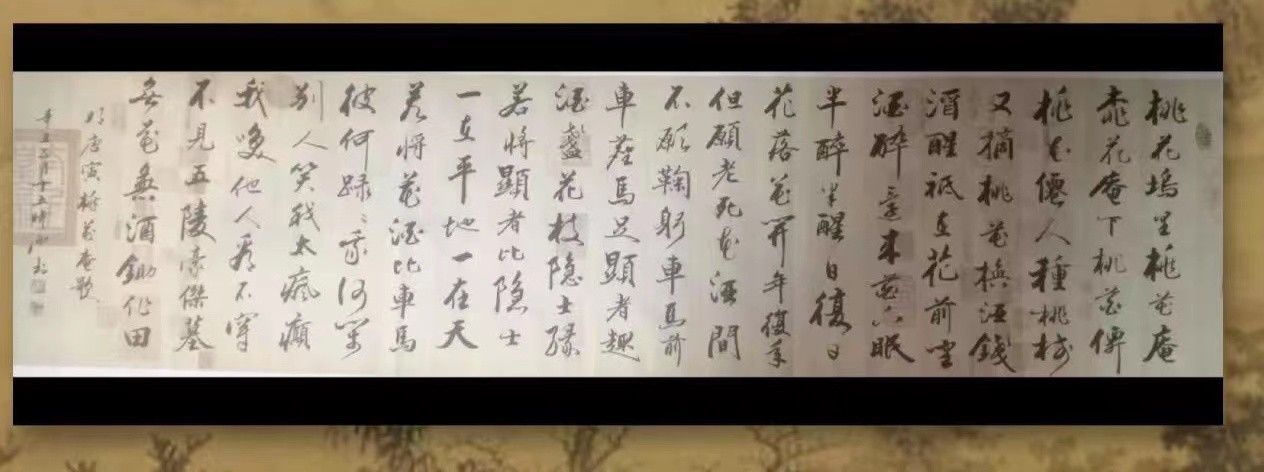 桃花塢里桃花庵
桃花庵下桃花僊
桃花僊人種桃樹
又摘桃花換酒錢
酒醒祇在花前坐
酒醉還來花下眠
半醉半醒日復日
花落花開年復年
但願老死花酒間
不願鞠躬車馬前
車塵馬足顯者趣
酒盞花枝隐士緣
若將顯者比隐士
一在平地一在天
若將花酒比車馬
彼何碌〻我何閒
别人笑我太瘋癲
我笑他人看不穿
不見五陵豪傑墓
無花無酒鋤作田
明唐寅桃花庵歌
辛丑 月十五